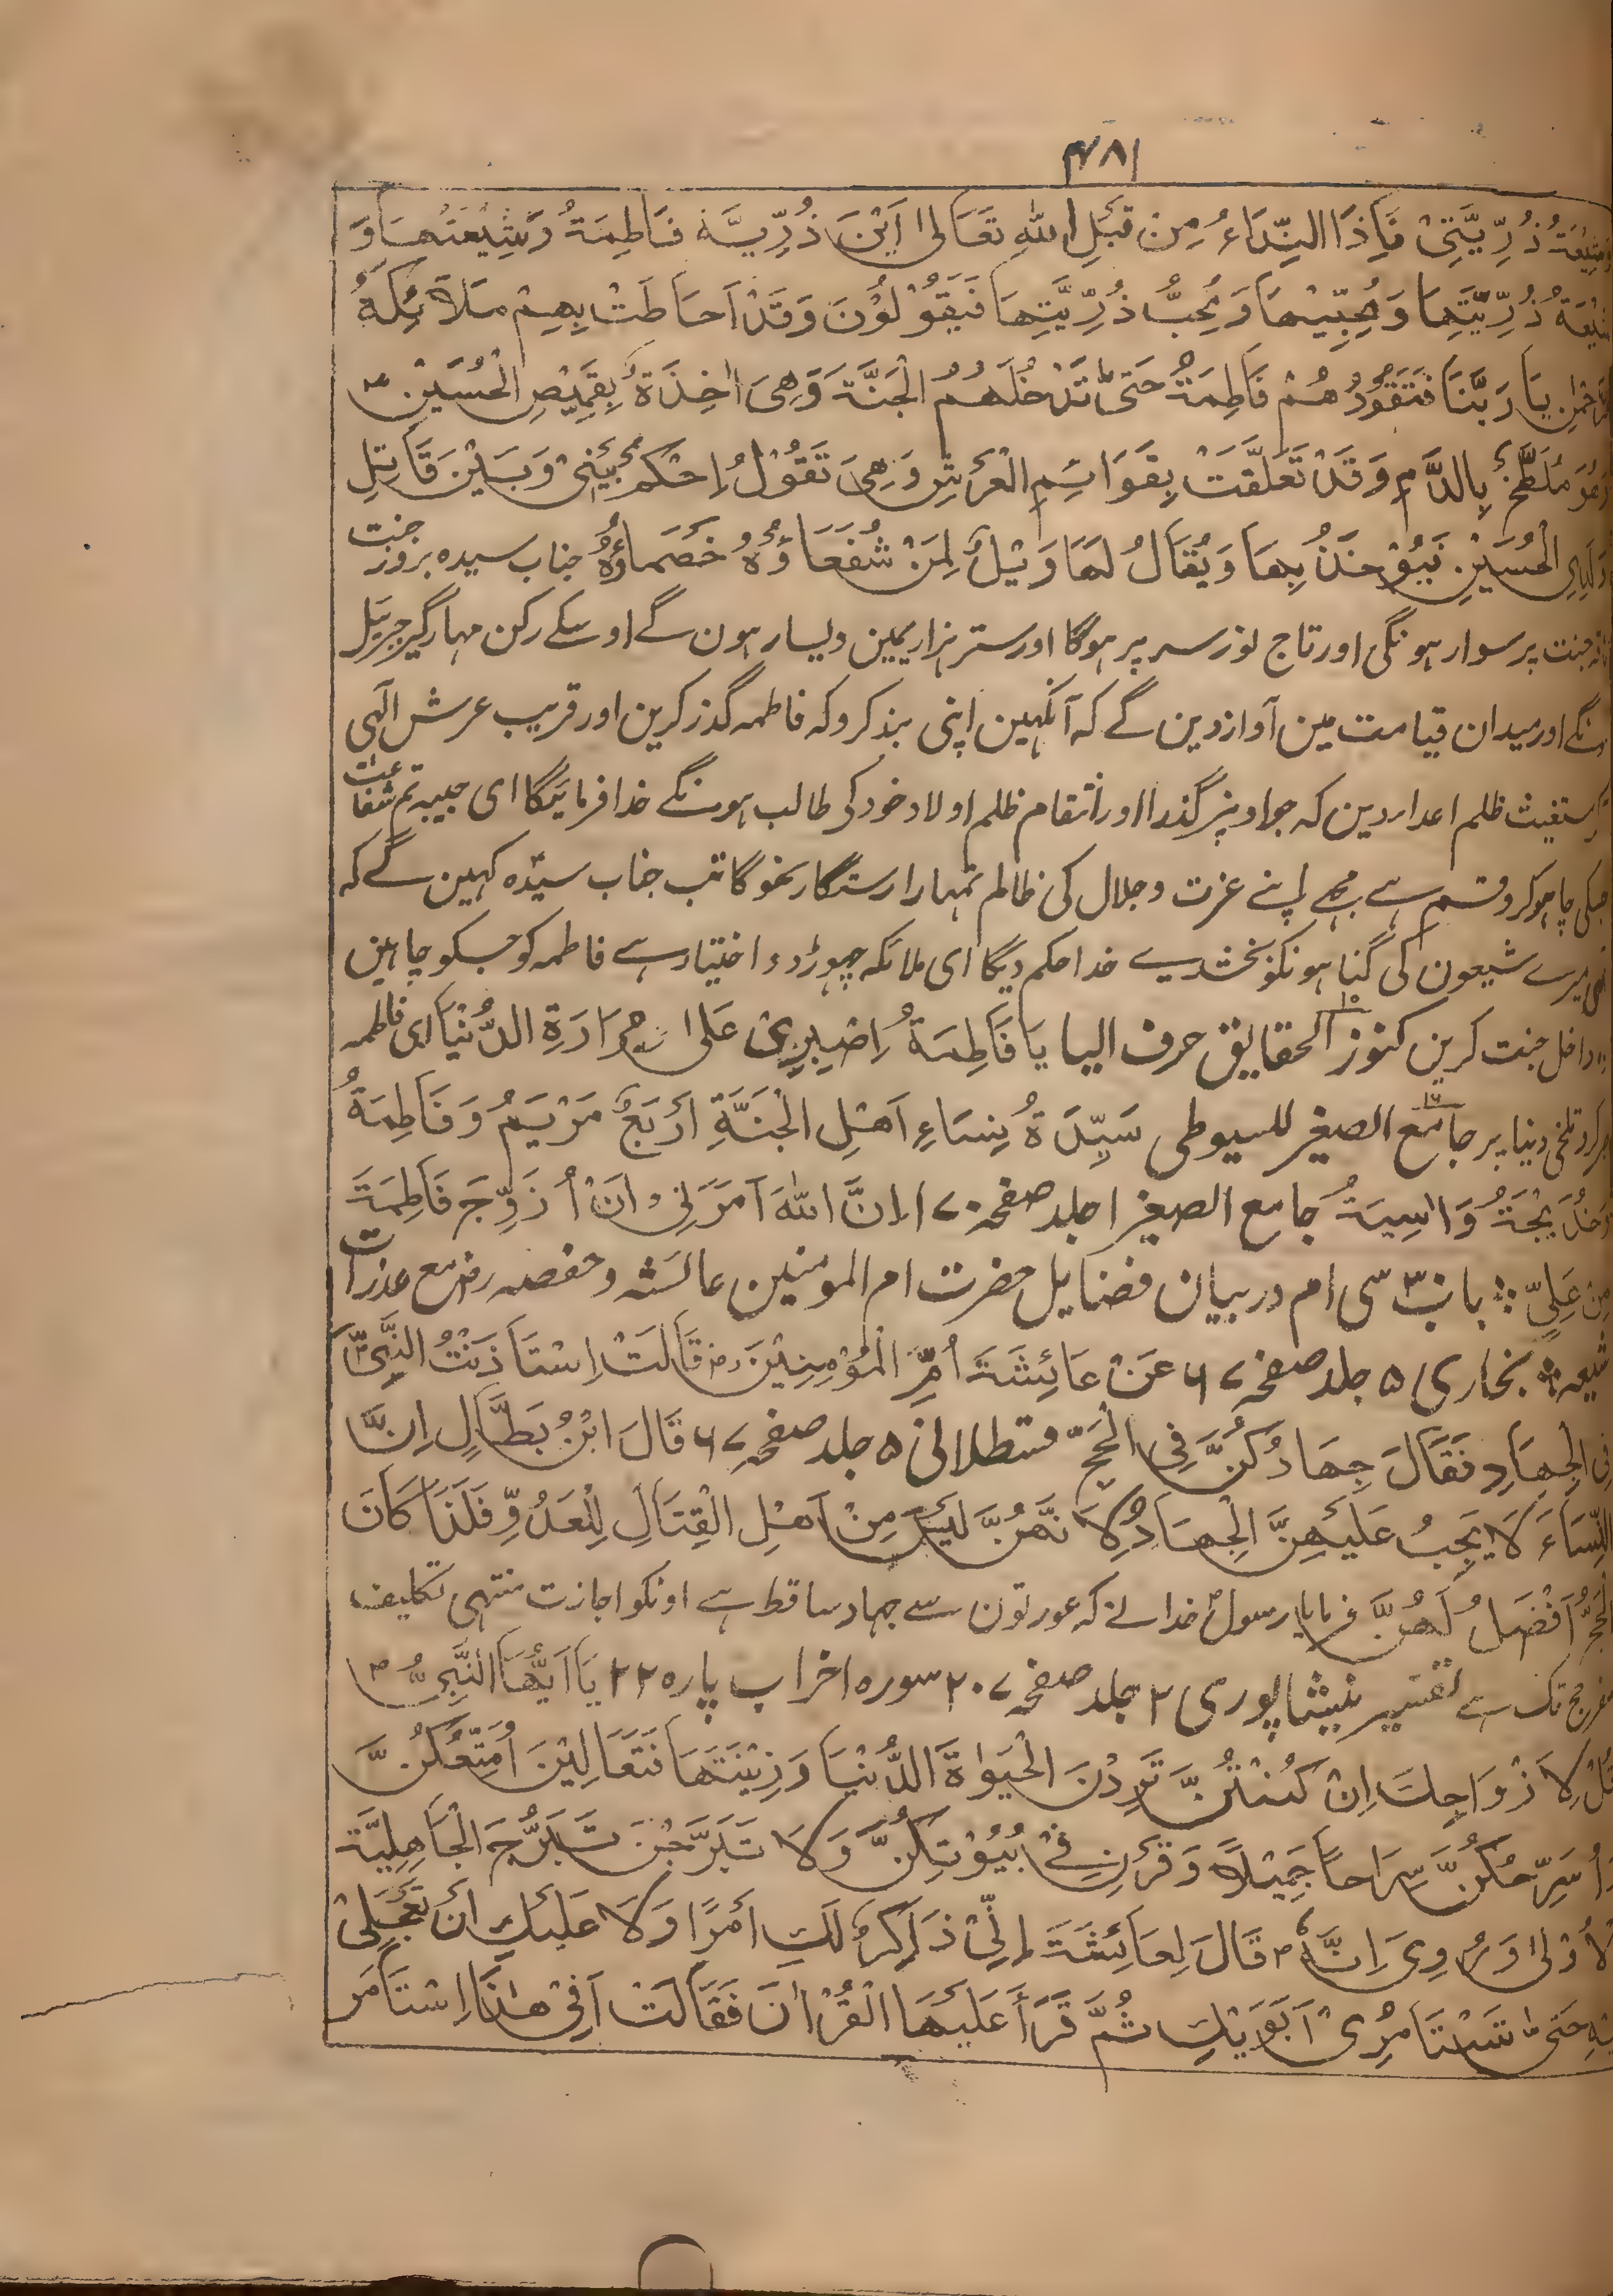 ۴۸۱
وَشِيْعَةُ ذُرِّيَّتِىْ فَاِذَا النِّدَاءُ مِنْ قِبَلِ اللهِ تَعَالٰى اَيْنَ ذُرِّيَّةُ فَاطِمَةُ وَشِيْعَتُهَا وَ
شِيْعَةُ ذُرِّيَّتِهَا وَمُحِبِّيْهَا وَمُحِبُّ ذُرِّيَّتِهَا فَيَقُوْلُوْنَ وَقَدْ اَحَاطَتْ بِهِمْ مَلَائِكَةُ
الرَّحْمٰنِ يَا رَبَّنَا فَتَقُوْدُ هُمْ فَاطِمَةُ حَتّٰى تَدْخُلَهُمُ الْجَنَّةَ وَهِىَ اٰخِذَةٌ بِقَمِيْصِ الْحُسَيْنِ ؑ
وَهُوَ مُلَطَّخٌ بِالدَّمِ وَقَدْ تَعَلَّقَتْ بِقَوَائِمِ الْعَرْشِ وَهِىَ تَقُوْلُ اِحْكُمْ بَيْنِىْ وَبَيْنَ قَاتِلِ
وَلَدِىْ الْحُسَيْنِ فَيُؤْخَذُ بِهَا وَيُقَالُ لَهَا وَيْلٌ لِمَنْ شُفَعَاؤُهُ خُصَمَاؤُهُ جناب سیدہ بروز جنت
ناقہ جنت پر سوار ہونگی اور تاج نور سر پر ہوگا اور ستر ہزار یمین ویسار ہون گے اوسکے رکن مہار گیر جبریل
ہونگے اور میدان قیامت مین آواز دین گے کہ آنکہین اپنی بند کرو کہ فاطمہ گذر کرین اور قریب عرش الٰہی
مستغیث ظلم اعداء دین کہ جو اونپر گذرا اور انتقام ظلم اولاد خود کی طالب ہونگے خدا فرمائیگا ای حبیبہ تم شفاعت
جسکی چاہو کرو قسم ہے مجھے اپنے عزت وجلال کی ظالم تمہارا رستگار نہوگا تب جناب سیدہ کہین گے کہ
الٰہی میرے شیعون کی گناہونکو بخشدے خدا حکم دیگا ای ملائکہ چہوڑدو اختیار ہے فاطمہ کو جسکو چاہین
داخل جنت کرین کنوز الحقایق حرف الیا يَا فَاطِمَةُ اِصْبِرِىْ عَلٰى مَرَارَةِ الدُّنْيَا ای فاطمہ
صبر کرو تلخی دنیا پر جامع الصغیر للسیوطی سَيِّدَةُ نِسَاءِ اَهْلِ الْجَنَّةِ اَرْبَعٌ مَرْيَمُ وَفَاطِمَةُ
وَخَدِيْجَةُ وَاٰسِيَةُ جامع الصغیر ۱ جلد صفحہ ۱۷۰ اِنَّ اللهَ اَمَرَنِىْ اَنْ اُزَوِّجَ فَاطِمَةَ
مِنْ عَلِىٍّ ؞ باب ۳ سی ام در بیان فضایل حضرت ام المومنین عائشہ و حفصہ رض مع عذرات
شیعہ ؞ بخاری ۵ جلد صفحہ ۷۶ عَنْ عَائِشَةَ اُمِّ الْمُؤْمِنِيْنَ رض قَالَتْ اِسْتَأْذَنْتُ النَّبِىَّ
فِى الْجِهَادِ فَقَالَ جِهَادُكُنَّ فِى الْحَجِّ قسطلانی ۵ جلد صفحہ ۷۶ قَالَ ابْنُ بَطَّالٍ اِنَّ
النِّسَاءَ لَا يَجِبُ عَلَيْهِنَّ الْجِهَادُ لِاَنَّهُنَّ لَيْسَ مِنْ اَهْلِ الْقِتَالِ لِلْعَدُوِّ فَلَذَا كَانَ
الْحَجُّ اَفْضَلُ لَهُنَّ فرمایا رسول خدا نے کہ عورتون سے جہاد ساقط ہے اونکو اجازت منتہی تکلیف
سفر حج تک ہے تفسیر نیشاپوری ۳ جلد صفحہ ۲۰۷ سورہ احزاب پارہ ۲۲ يَا اَيُّهَا النَّبِىُّ
قُلْ لِاَزْوَاجِكَ اِنْ كُنْتُنَّ تُرِدْنَ الْحَيٰوةَ الدُّنْيَا وَزِيْنَتَهَا فَتَعَالَيْنَ اُمَتِّعْكُنَّ
وَاُسَرِّحْكُنَّ سِرَاحًا جَمِيْلًا وَقَرْنَ فِىْ بُيُوْتِكُنَّ وَلَا تَبَرَّجْنَ تَبَرُّجَ الْجَاهِلِيَّةِ
الْاُوْلٰى وَرُوِىَ اِنَّهُ قَالَ لِعَائِشَةَ اِنِّىْ ذَاكِرٌ لَكِ اَمْرًا وَلَا عَلَيْكِ اَنْ تَعْجَلِىْ
فِيْهِ حَتّٰى تَسْتَامِرِىْ اَبَوَيْكِ ثُمَّ قَرَأَ عَلَيْهَا الْقُرْاٰنَ فَقَالَتْ اَفِىْ هٰذَا اِسْتَأْمَرَ